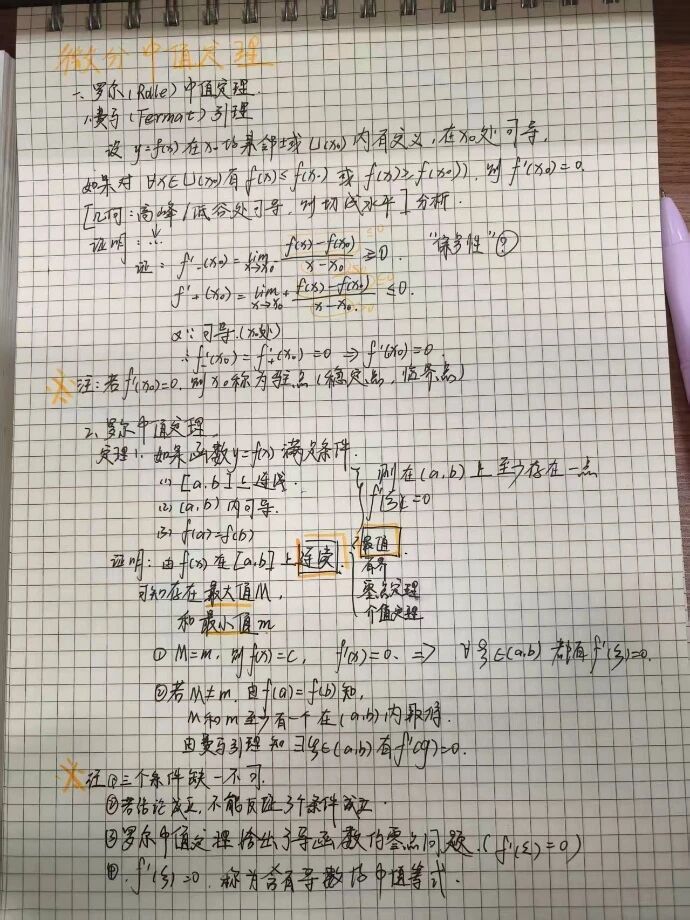 微分中值定理
一、罗尔(Rolle)中值定理.
1.费马(Fermat)引理
设 y=f(x)在x₀的某邻域U(x₀)内有定义,在x₀处可导,
如果对∀x∈U(x₀)有f(x)≤f(x₀) 或 f(x)≥f(x₀)),则f'(x₀)=0.
[几何:高峰/低谷处可导,则切线水平]分析.
证明:…
证: f'₋(x₀)=lim x→x₀⁻ (f(x)-f(x₀))/(x-x₀) ≥0. "保号性"?
f'₊(x₀)=lim x→x₀⁺ (f(x)-f(x₀))/(x-x₀) ≤0.
又∵可导(x₀处)
∴f'₋(x₀)=f'₊(x₀)=0 ⇒ f'(x₀)=0.
※注:若f'(x₀)=0,则x₀称为驻点(稳定点,临界点)
2、罗尔中值定理.
定理1、如果函数y=f(x)满足条件.
(1) [a,b]上连续.
(2) (a,b)内可导.
(3) f(a)=f(b)
则在(a,b)上至少存在一点
f'(ξ)=0
证明:由f(x)在[a,b]上连续.
最值
有界
零点定理
介值定理
可知存在最大值M,
和最小值m
① M=m,则f(x)=C, f'(x)=0. ⇒ ∀ξ∈(a,b)都有f'(ξ)=0.
②若M≠m,由f(a)=f(b)知,
M和m至少有一个在(a,b)内取得.
由费马引理知∃ξ∈(a,b)有f'(ξ)=0.
※注①三个条件缺一不可.
②若结论成立,不能反证3个条件成立.
③罗尔中值定理给出了导函数的零点问题.(f'(ξ)=0)
④.f'(ξ)=0.称为含有导数的中值等式.